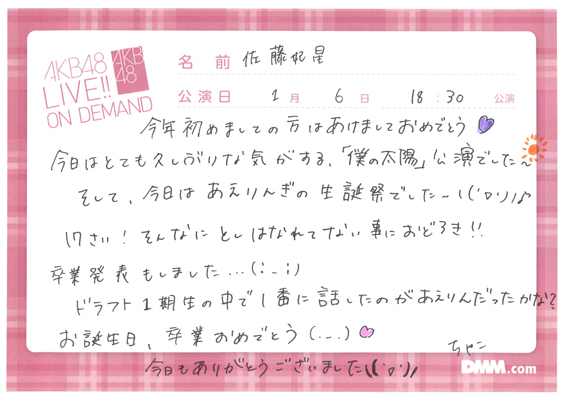 AKB48
LIVE!!
ON DEMAND
AKB
48
名前 佐藤妃星
公演日 1月 6日 18:30 公演
今年初めましての方はあけましておめでとう
今日はとても久しぶりな気がする、「僕の太陽」公演でした〜
そして、今日はあえりんぎの生誕祭でした〜\('ロ')/♪
17さい!そんなにとしはなれてない事におどろき!!
卒業発表もしました...(:_;)
ドラフト1期生の中で1番に話したのがあえりんだったかな?
お誕生日、卒業おめでとう(._.)
ちゃこ
今日もありがとうございました\('ロ')/
DMM.com